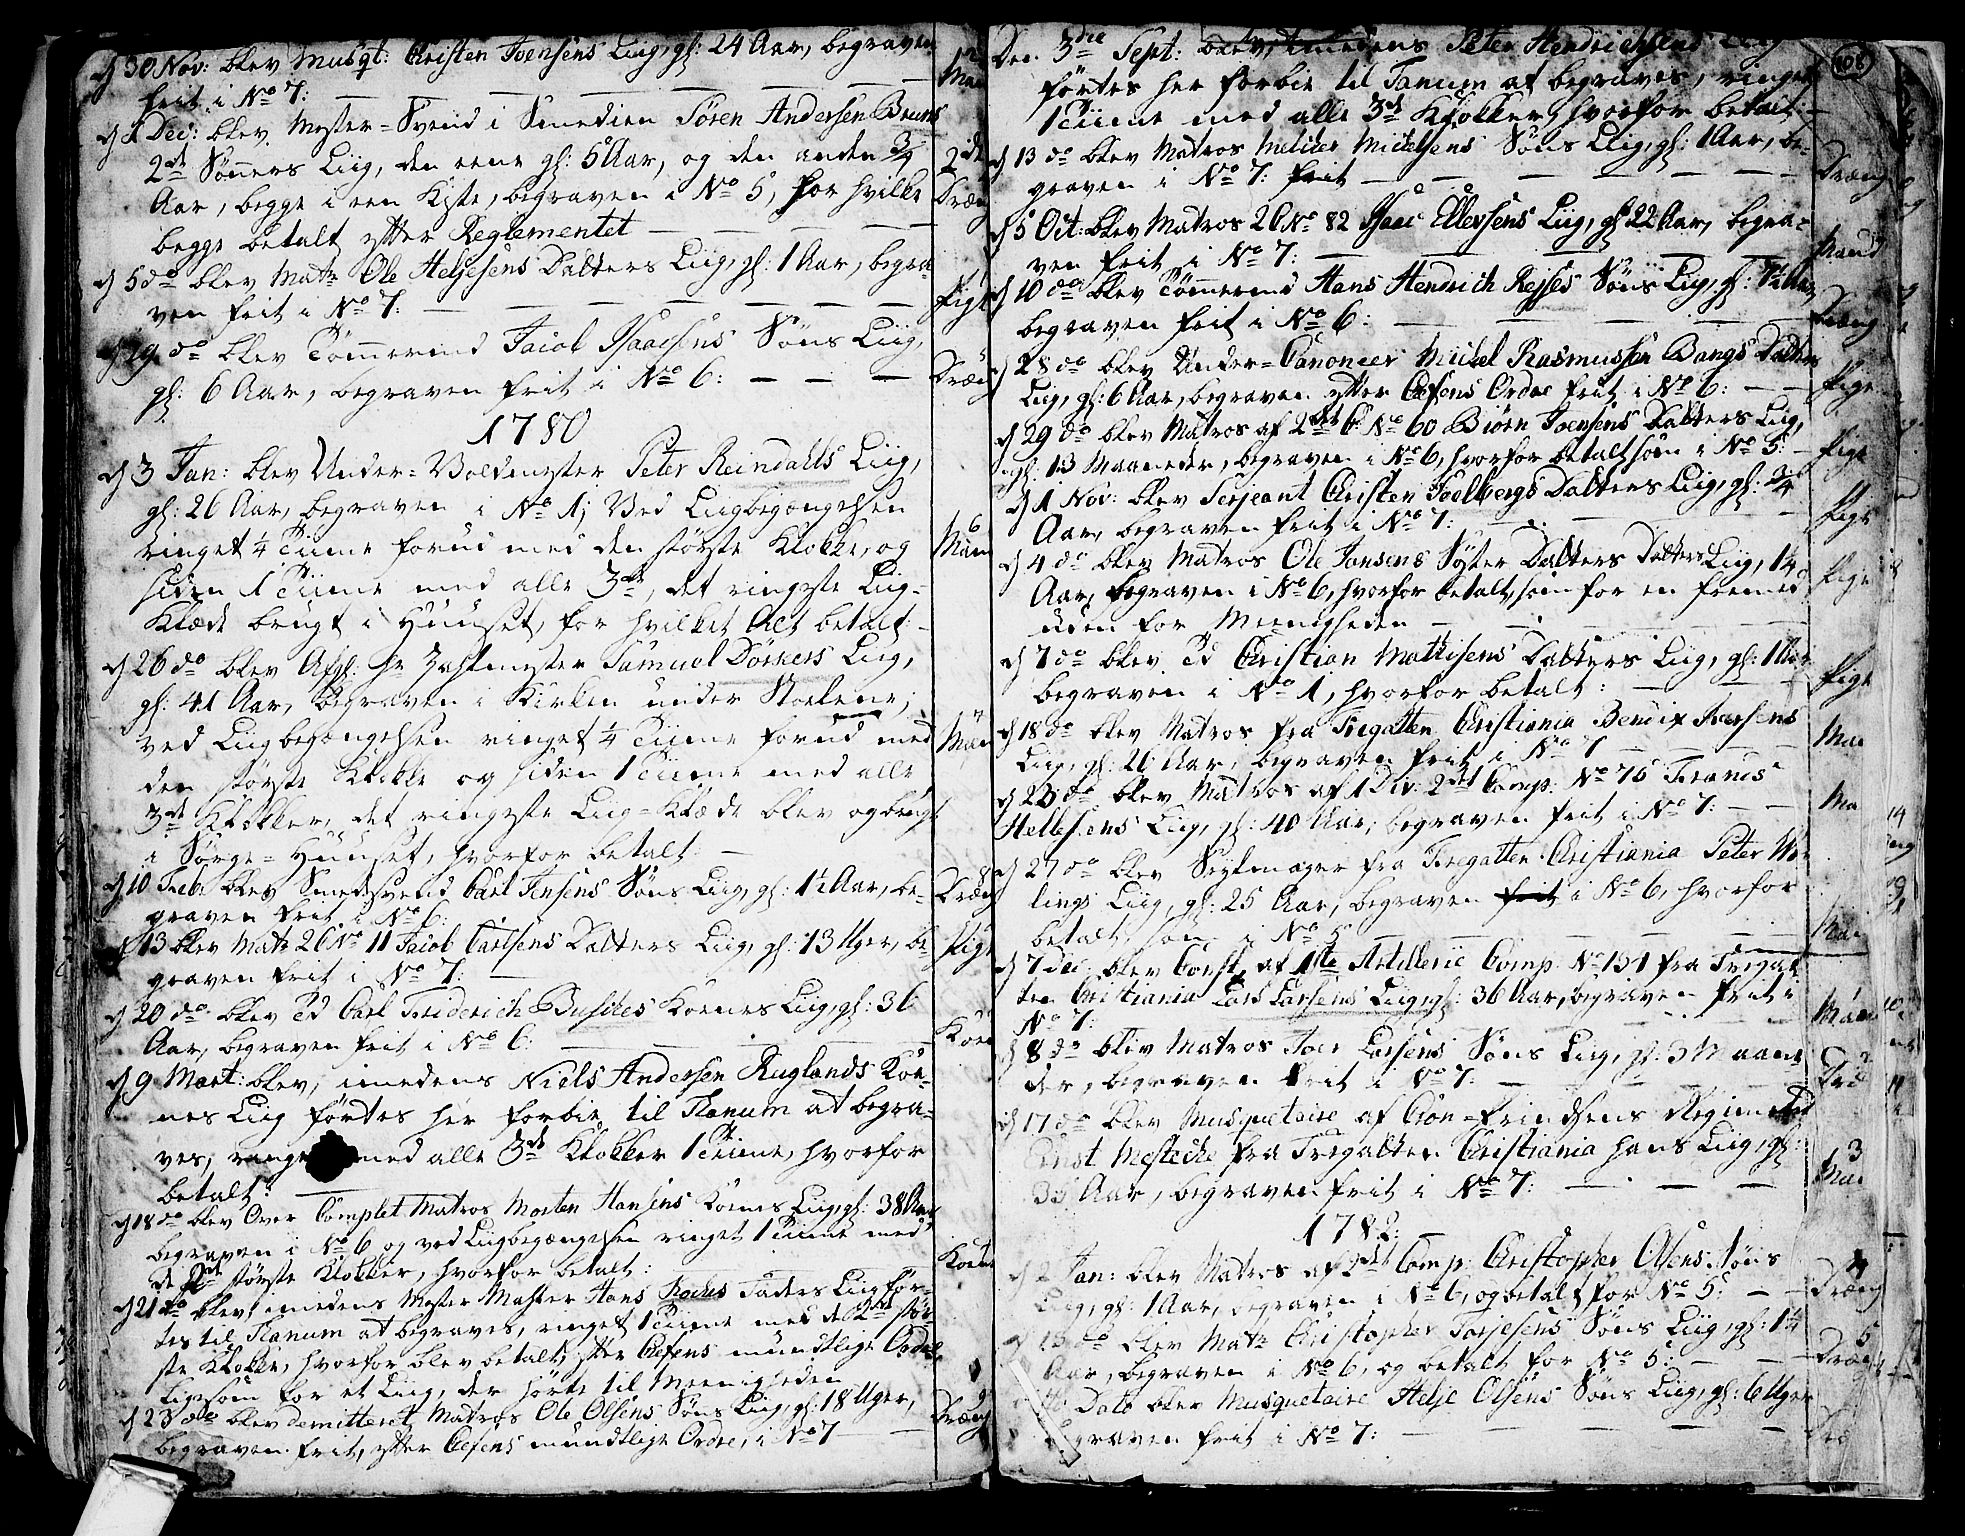 d 30 Nov: blev Musqt: Christen Joensens Liig, gl: 24 Aar, begraven
frit i No 7:
d 2 Dec: blev Mester-Svend i Smedien Sören Andersen Bruns
2de Sönners Liig, den eene gl: 5 Aar, og den anden 3/4
Aar, begge i een Kiste, begraven i No 5, for hvilke
begge betalt efter Reglementet
d 5 do blev Matr Ole Helgesens Datters Liig, gl: 1 Aar, begra
ven frit i No 7:
d 29 do blev Tömmermd Jacob Isaacsens Söns Liig,
gl: 6 Aar, begraven frit i No 6:
1780
d 3 Jan: blev Under-Voldmester Peter Reindahls Liig,
gl: 26 Aar, begraven i No 1; Ved Liigbegängelsen
ringet 1/4 Tiime forud med den störste Klokke, og
siden 1 Tiime med alle 3de, det ringeste Liig-
Klæde brugt i Huuset, for hvilket Alt betalt:
d 26 do blev Afgl: Hr Samuel Dorkers Liig,
gl: 41 Aar, begraven i Kirken under Stoelene;
ved Liigbegængelsen ringet 1/4 Tiime forud med
den störste Klokke og siden 1 Tiime med alle
3de Klokker, det ringeste Liig-Klæde blev og brugt
i Sörge-Huuset, hvorfor betalt:
d 10 Febr blev Smedesvend Carl Jensens Söns Liig, gl: 1 1/2 Aar, be-
graven frit i No 6:
d 13 blev Matr 2 C No 11 Jacob Carlsens Datters Liig, gl: 13 Uger, be
graven frit i No 7:
d 20 do blev Td Carl Friderich Busches Kones Liig, gl: 36
Aar, begraven frit i No 6:
d 9 Mart: blev, imedens Niels Andersen Ruglands Ko-
nes Liig förtes her forbie til Tanum at begra-
ves, ringet med alle 3de Klokker 1 Tiime, hvorfor
betalt:
d 18 do blev Over Complet Matros Morten Hansens Kones Liig, gl: 38 Aar,
begraven i No 6, og ved Liigbegængelsen ringet 1 Tiime med
de 2de störste Klokker, hvorfor betalt:
d 21 do blev, imedens Mester Hans Faders Liig för-
tes til Tanum at begraves, ringet 1 Tiime med de 2de stör-
ste Klokker, hvorfor blev betalt, efter Chefens mundtlige Ordre,
ligesom for et Liig, der hörte til Meenigheden
d 23 do blev demitteret Matros Ole Olsens Söns Liig, gl: 18 Uger,
begraven frit, efter Chefens mundtlige Ordre, i No 7
2de
Dreng
Pige
Dreng
6
Mand
8
Dreng
Pige
Kone
Kone
9
Dreng
108
Den 3die Sept: blev, imedens Peter Hendrichsens Liig
förtes her forbie til Tanum at begraves, ringet
1 Tiime med alle 3de Klokker, hvorfor betalt:
d 13 do blev Matros Michelsens Söns Liig, gl: 1 Aar, be-
graven i No 7: frit
d 5 Oct: blev Matros 2 C No 82 Isaac Ellefsens Liig, gl 22 Aar, begra-
ven frit i No 7:
d 10 do blev Tömmermd Hans Hendrich Söns Liig, gl:
begraven frit i No 6:
d 28 do blev Under-Canoneer Michel Rasmussen Bangs Datters
Liig, gl: 6 Aar, begraven efter Chefens Ordre frit i No 6:
d 29 do blev Matros af 2det C No 60 Biörn Joensens Datters Liig,
gl: 13 Maaneder, begraven i No 6, hvorfor betalt som i No 5:
d 1 Nov: blev Serjeant Christen Datters Liig, gl: 3/4
Aar, begraven frit i No 7:
d 4 do blev Matros Ole Jonsens Söster Datters Datters Liig, 14
Aar, begraven i No 6, hvorfor betalt, som for en fremmed
uden for Meenigheden
d 7 do blev Td Christian Mathisens Datters Liig, gl: 1 Aar
begraven i No 1, hvorfor betalt:
d 18 do blev Matros fra Fregatten Christiania Bendix Iversens
Liig, gl: 26 Aar, begraven frit i No 7
d 23 do blev Matros af 1 Div: 2det Comp: No 76 Francs
Hellesens Liig, gl: 40 Aar, begraven frit i No 7:
d 27 do blev Seylmager fra Fregatten Christiania Peter
lings Liig, gl: 25 Aar, begraven frit i No 6, hvorfor
betalt, som i No 5
d 7 Dec: blev Const: af 1ste Artillerie Comp: No 134 fra Fregat
ten Christiania Lars Larsens Liig, gl: 36 Aar, begraven frit i
No 7:
d 8 do blev Matros Joer Larsens Söns Liig, gl: 3 Maane
der, begraven frit i No 7:
d 17 do blev Musquetaire af Cron-Printzens Regiment
Ernst fra Fregatten Christiania hans Liig, gl:
33 Aar, begraven frit i No 7:
1782:
Jan: blev Matros af 2det Comp: Christopher Olsens Söns
Liig, gl: 1 Aar, begraven i No 6, og betalt for No 5:
d 13 do blev Matr Christopher Torjesens Söns Liig, gl: 1 1/4
Aar, begraven i No 6, og betalt for No 5:
Dato blev Musquetaire Helje Olsens Söns Liig, gl: 6 Uger
begraven frit i No 7:
Dreng
Mand
Dreng
Pige
Pige
Pige
Pige
Pige
1
Mand
2
3
4
Dreng
5
Dreng